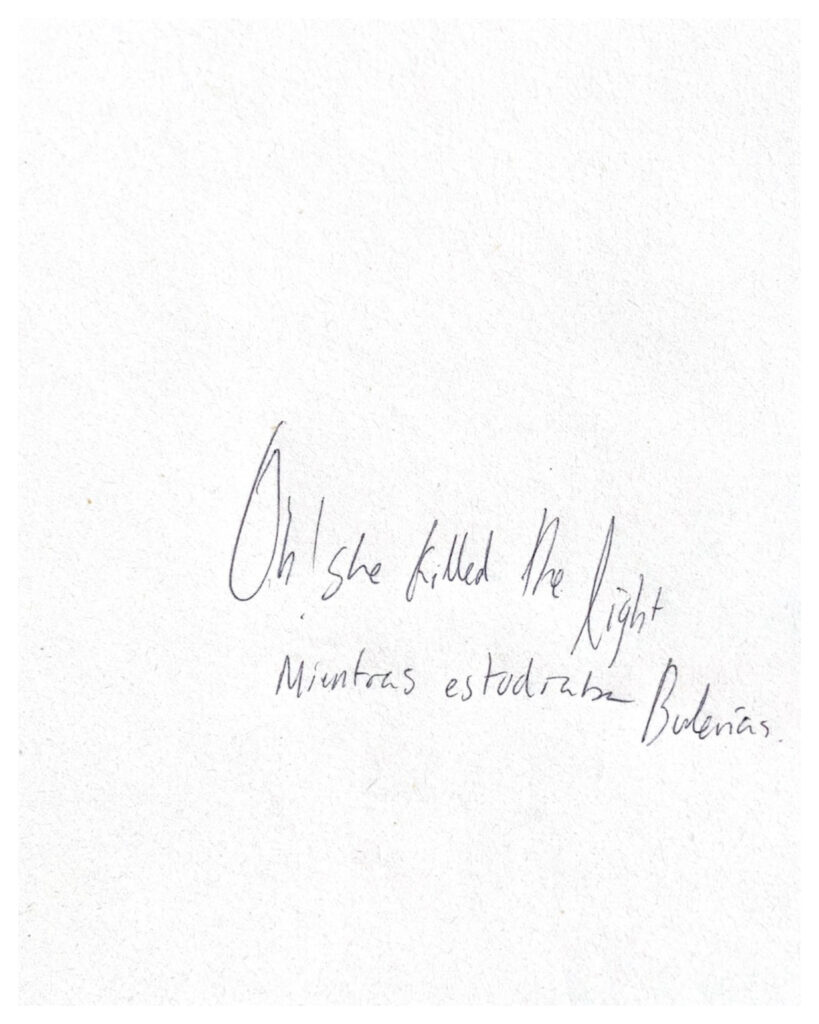 Oh! she killed the light
Mientras estudiaba Bulerías.